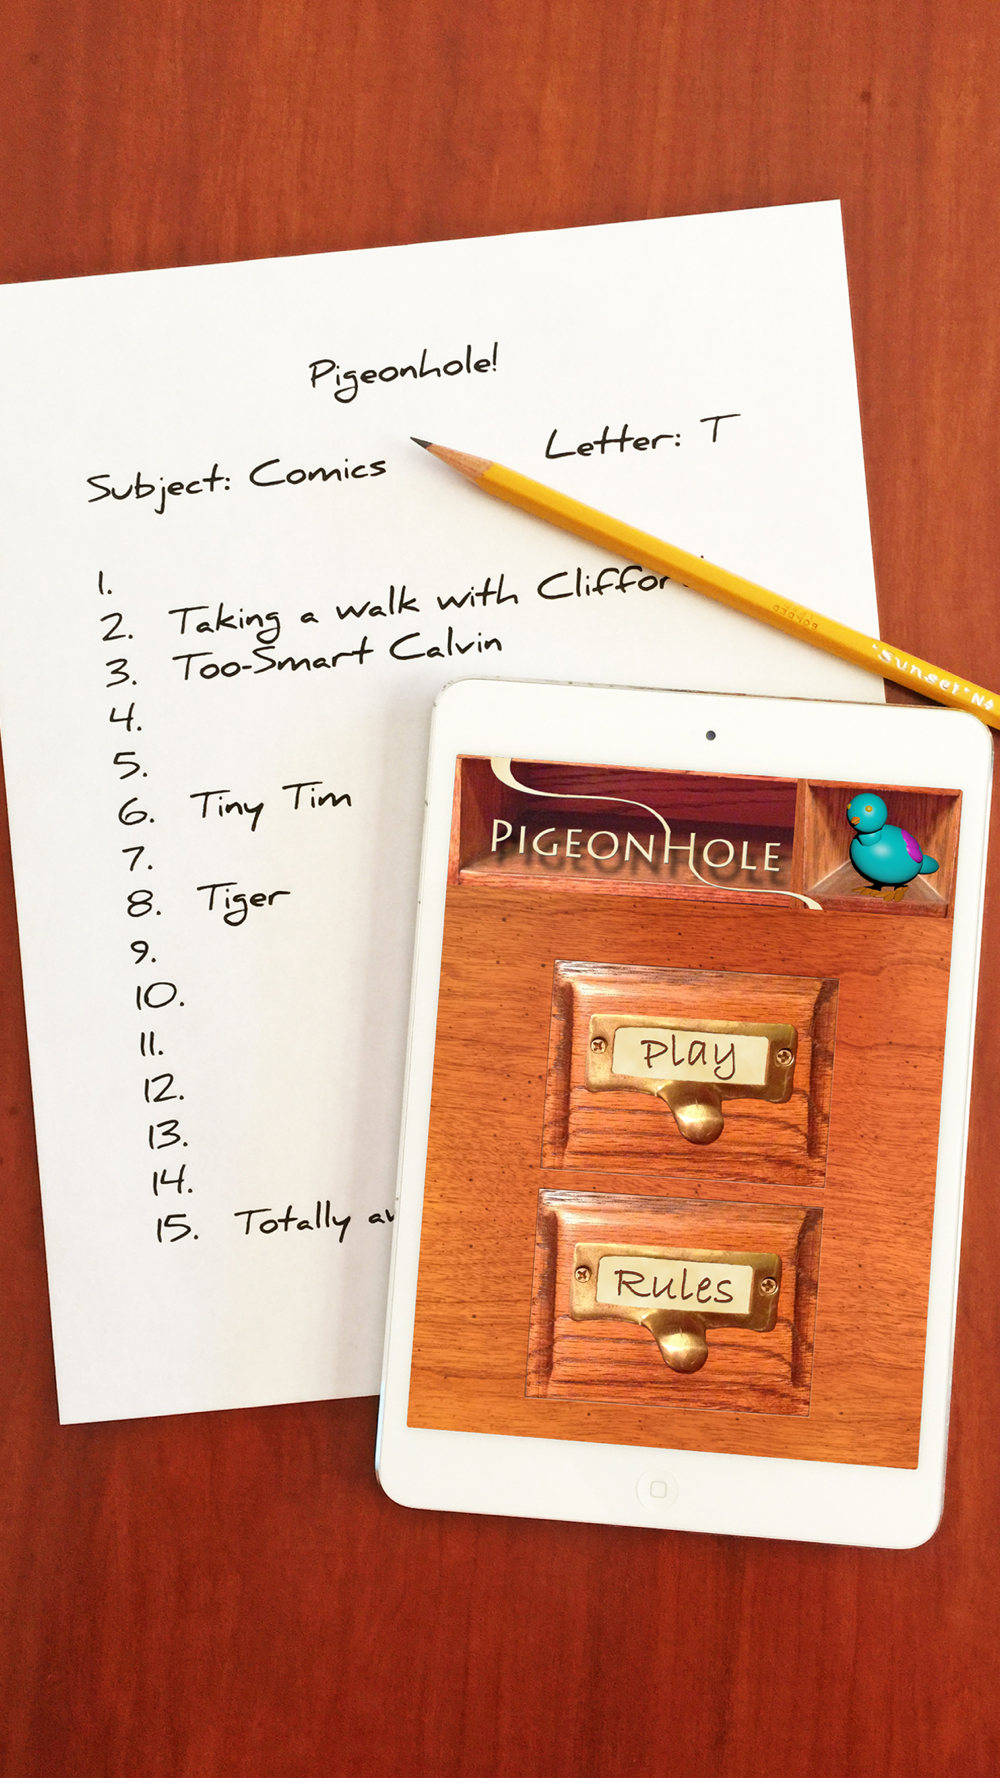 Pigeonhole!
Subject: Comics
Letter: T
1.
2. Taking a walk with
3. Too-Smart Calvin
4.
5.
6. Tiny Tim
7.
8. Tiger
9.
10.
11.
12.
13.
14.
15. Totally
"Sunset"
PIGEONHOLE
Play
Rules